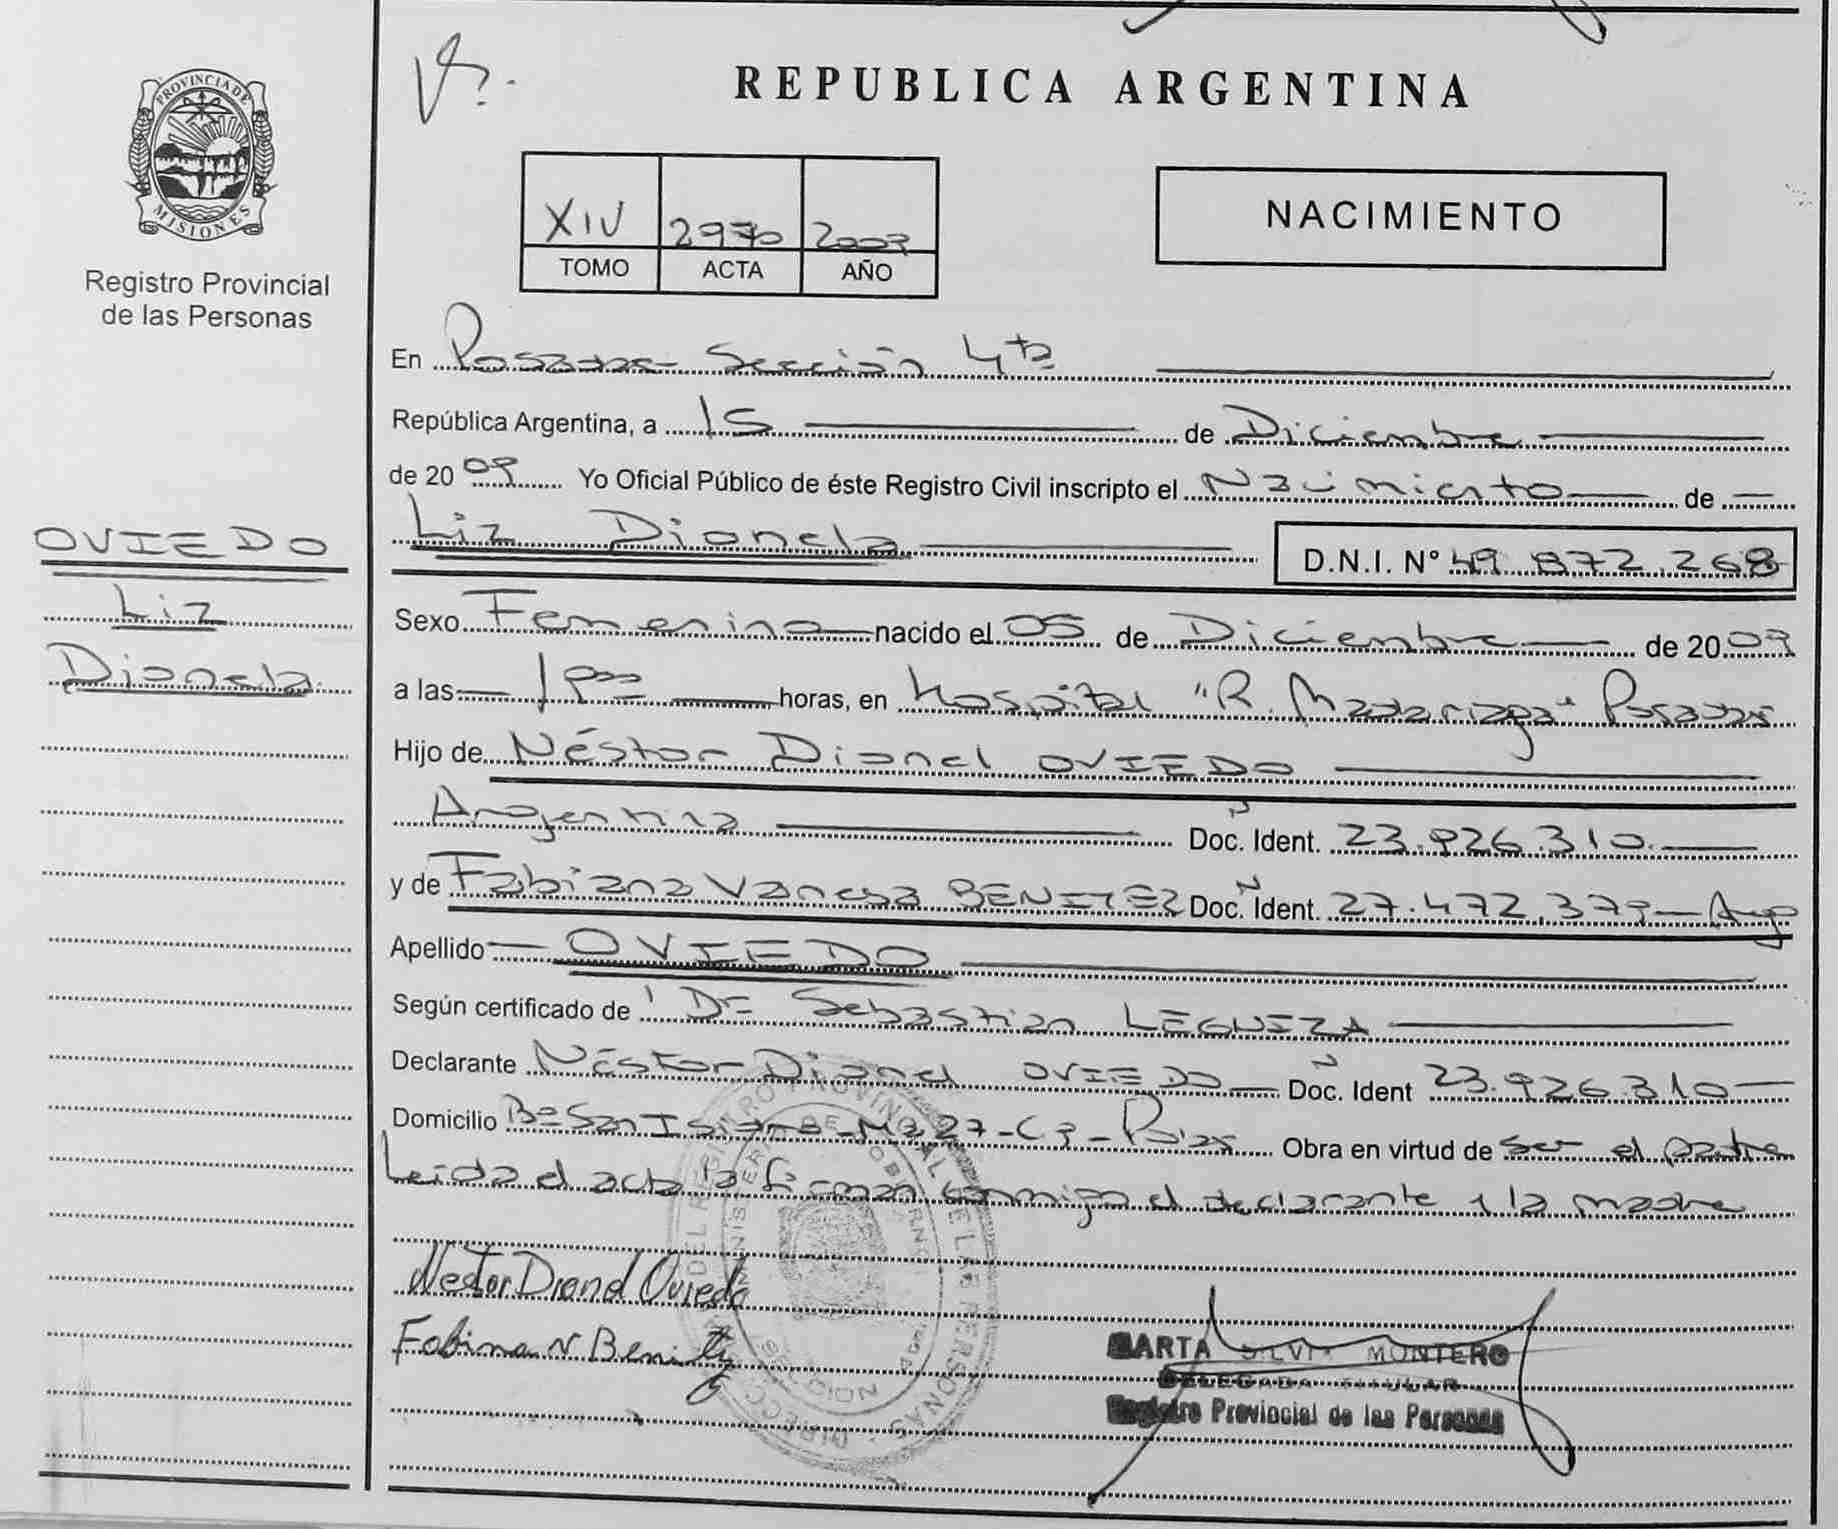 PROVINCIA DE
MISIONES
Registro Provincial
de las Personas
OVIEDO
Liz
Dionela
REPUBLICA ARGENTINA
XIV 2970 2009
TOMO ACTA AÑO
NACIMIENTO
En Posadas Sección 4ta
República Argentina, a 15 de Diciembre
de 2009 Yo Oficial Público de éste Registro Civil inscripto el Nacimiento de
Liz Dionela D.N.I. Nº 49.872.268
Sexo Femenino nacido el 05 de Diciembre de 2009
a las horas, en Hospital "R. Madariaga" Posadas
Hijo de Néstor Dionel OVIEDO
Argentina Doc. Ident. 23.926.310
y de Fabiana Vanesa BENITEZ Doc. Ident. 27.472.379 - Arg
Apellido OVIEDO
Según certificado de Dr Sebastian LEGUIZA
Declarante Néstor Dionel OVIEDO Doc. Ident 23.926.310
Domicilio Bº San Isidro - Mz 27 - C9 - Obra en virtud de ser el padre
Leída el acta la firman conmigo el declarante y la madre
Nestor Dionel Oviedo
Fabiana V Benitez
MARTA SILVIA MONTERO
DELEGADA TITULAR
Registro Provincial de las Personas